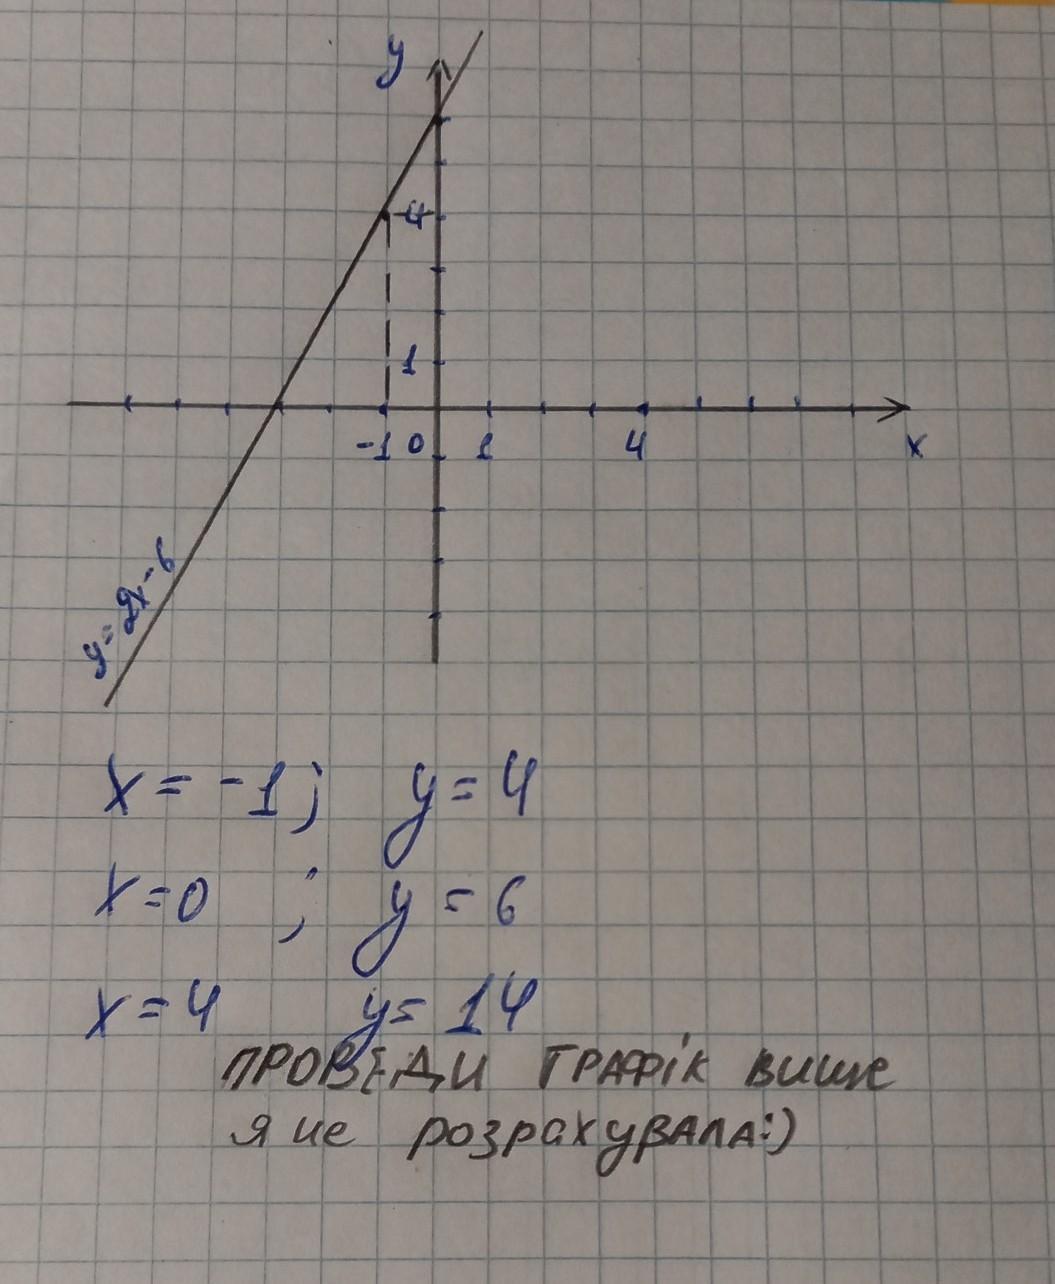 y
4
1
-1 0 1 4 x
y=2x-6
x = -1; y = 4
x=0 ; y = 6
x = 4 y= 14
ПРОВЕДИ ГРАФІК ВИЩЕ
я не розрахувала:)